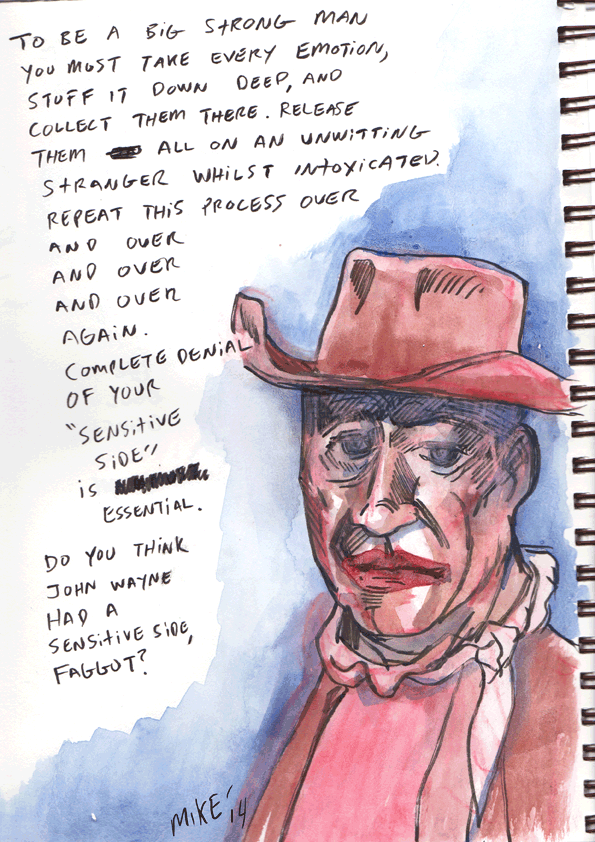 TO BE A BIG STRONG MAN
YOU MUST TAKE EVERY EMOTION,
STUFF IT DOWN DEEP, AND
COLLECT THEM THERE. RELEASE
THEM ALL ON AN UNWITTING
STRANGER WHILST INTOXICATED.
REPEAT THIS PROCESS OVER
AND OVER
AND OVER
AND OVER
AGAIN.
COMPLETE DENIAL
OF YOUR
"SENSITIVE
SIDE"
IS
ESSENTIAL.
DO YOU THINK
JOHN WAYNE
HAD A
SENSITIVE SIDE,
FAGGOT?
MIKE '14